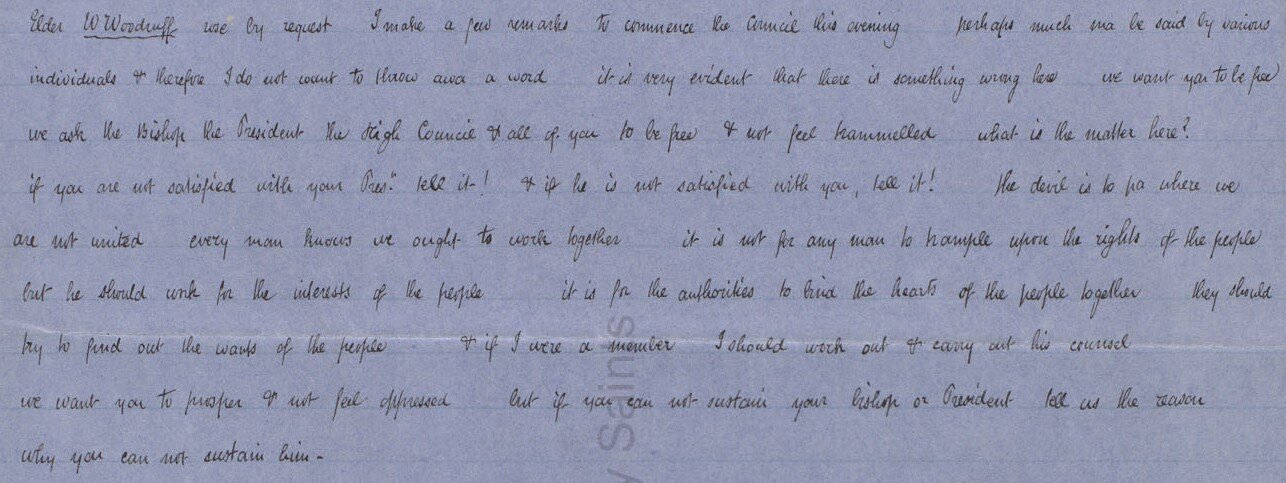 Elder W Woodruff rose by request I make a few remarks to commence the Council this evening perhaps much ma be said by various
individuals & therefore I do not want to throw awa a word it is very evident that there is something wrong here we want you to be free
we ask the Bishop the President the High Council & all of you to be free & not feel trammelled what is the matter here?
if you are not satisfied with your Pres.t tell it! & if he is not satisfied with you, tell it! the devil is to pa where we
are not united every man knows we ought to work together it is not for any man to trample upon the rights of the people
but he should work for the interests of the people it is for the authorities to bind the hearts of the people together they should
try to find out the wants of the people & if I were a member I should work out & carry out his counsel
we want you to prosper & not feel oppressed but if you can not sustain your bishop or President tell us the reason
why you can not sustain him -
y Saints